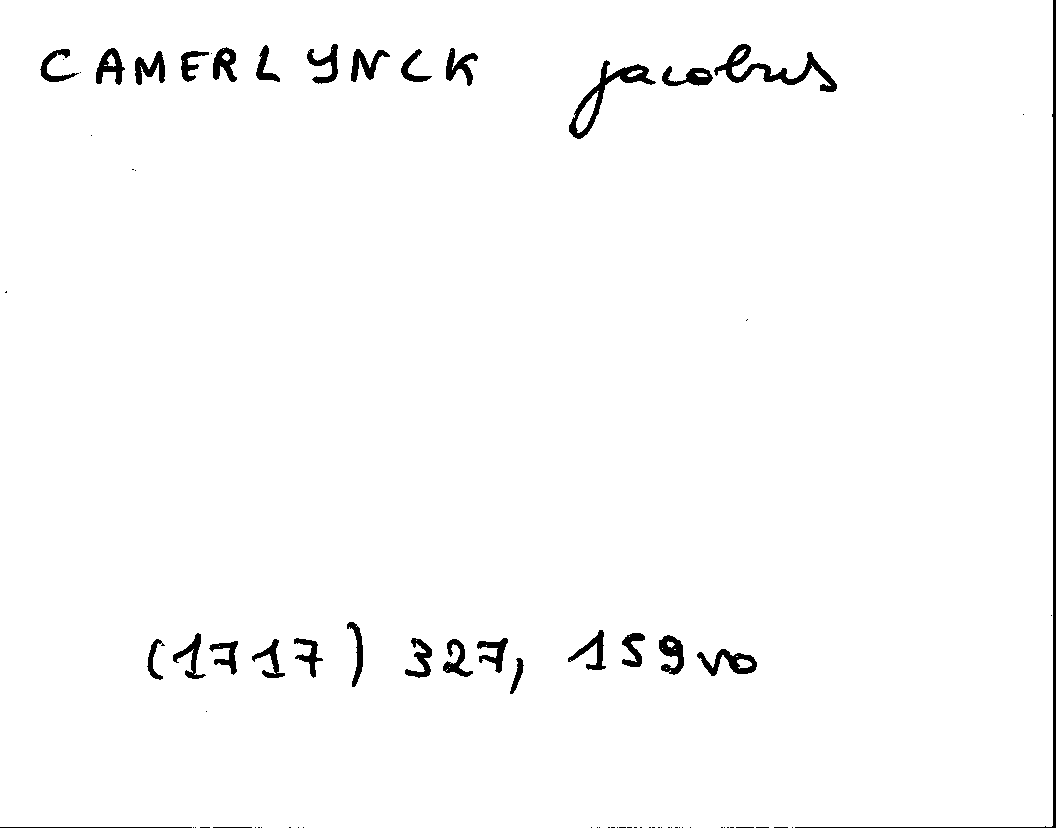 CAMERLYNCK jacobus
(1717) 327, 159vo